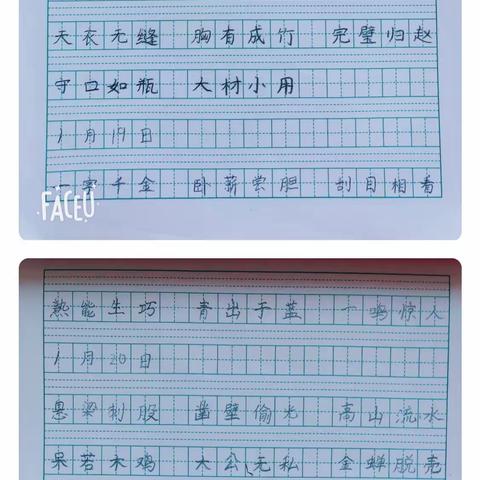 天衣无缝 胸有成竹 完璧归赵
守口如瓶 大材小用
1月19日
一字千金 卧薪尝胆 刮目相看
FACEU
熟能生巧 青出于蓝 一鸣惊人
1月20日
悬梁刺股 凿壁偷光 高山流水
呆若木鸡 大公、无私 金蝉脱壳